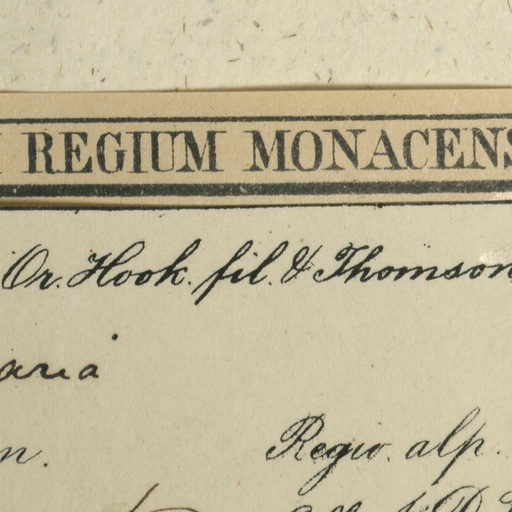 REGIUM MONACENS
Or. Hook. fil. & Thomson
aria
n. Regio. alp.